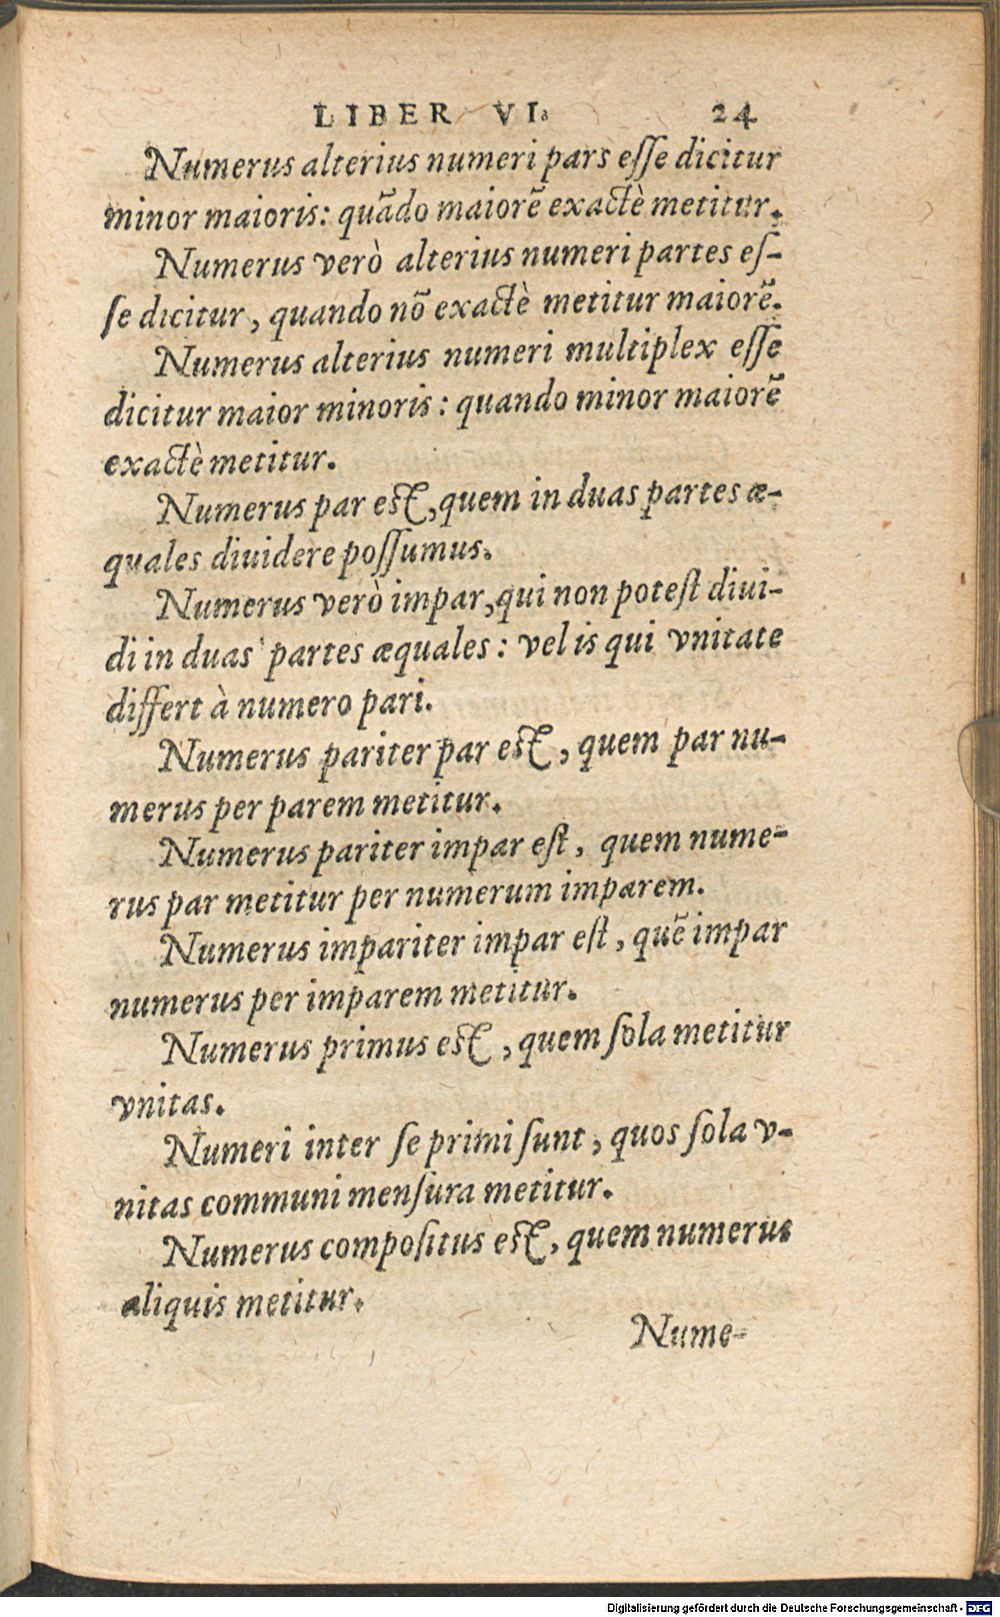 LIBER VI. 24
Numerus alterius numeri pars eſſe dicitur
minor maioris: quãdo maiorẽ exactè metitur.
Numerus verò alterius numeri partes eſ-
ſe dicitur, quando nõ exactè metitur maiorẽ.
Numerus alterius numeri multiplex eſſe
dicitur maior minoris: quando minor maiorẽ
exactè metitur.
Numerus par est, quem in duas partes æ-
quales diuidere poſſumus.
Numerus verò impar, qui non poteſt diui-
di in duas partes æquales: vel is qui vnitate
differt à numero pari.
Numerus pariter par est, quem par nu-
merus per parem metitur.
Numerus pariter impar eſt, quem nume-
rus par metitur per numerum imparem.
Numerus impariter impar eſt, quẽ impar
numerus per imparem metitur.
Numerus primus est, quem ſola metitur
vnitas.
Numeri inter ſe primi ſunt, quos ſola v-
nitas communi menſura metitur.
Numerus compoſitus est, quem numerus
aliquis metitur.
Nume-
Digitalisierung gefördert durch die Deutsche Forschungsgemeinschaft - DFG